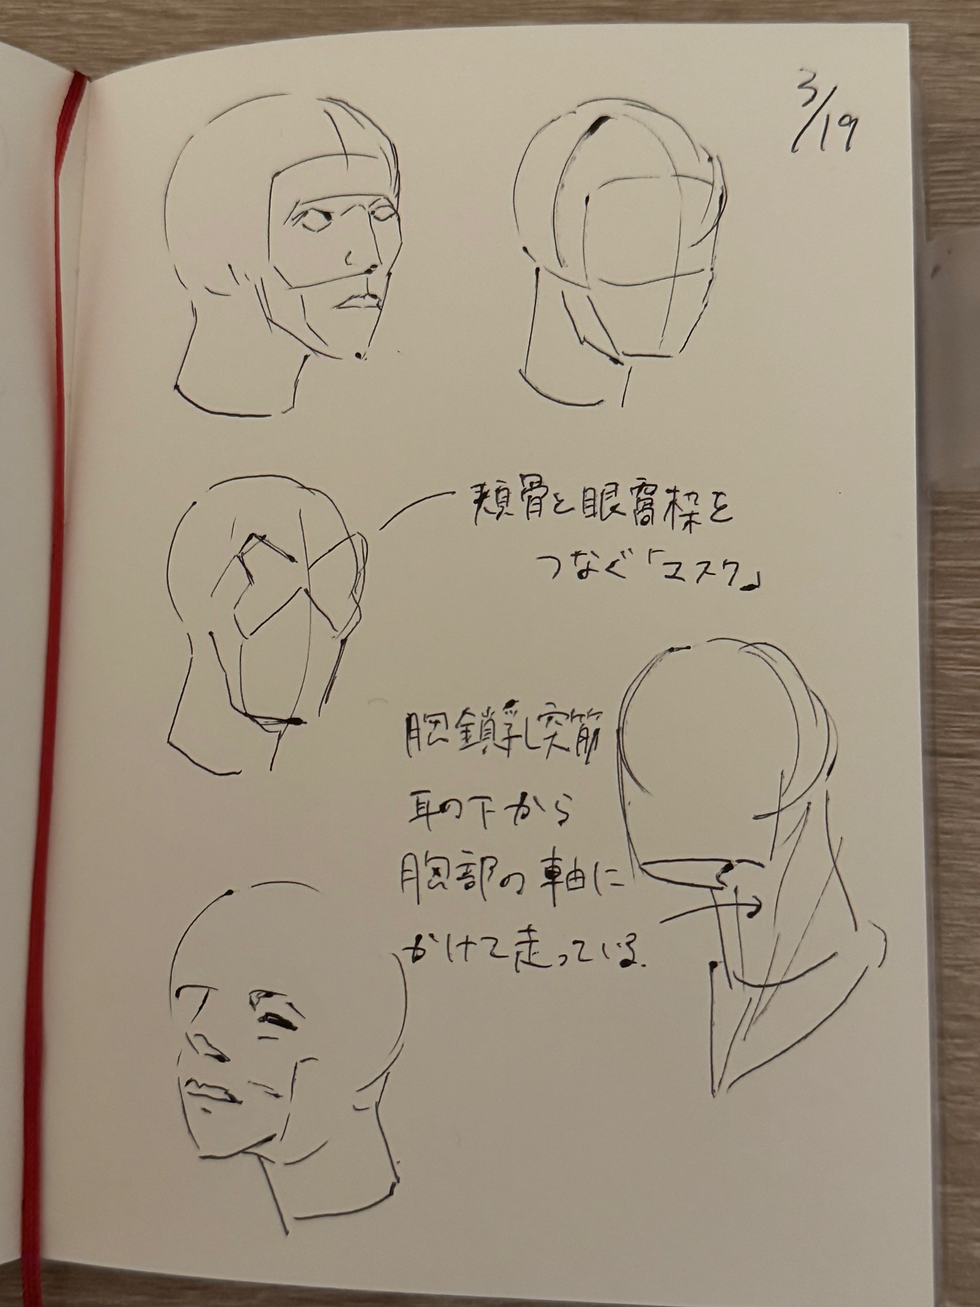 3/19
頬骨と眼窩枠を
つなぐ「マスク」
胸鎖乳突筋
耳の下から
胸部の軸に
かけて走っている.